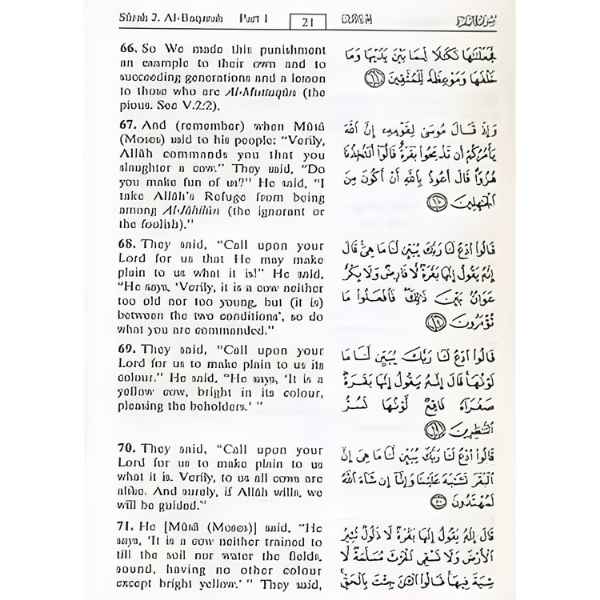 Sûrah 2. Al-Baqarah Part 1 21
66. So We made this punishment
an example to their own and to
succeeding generations and a lesson
to those who are Al-Muttaqûn (the
pious. See V.2:2).
67. And (remember) when Mûsâ
(Moses) said to his people: “Verily,
Allâh commands you that you
slaughter a cow.” They said, “Do
you make fun of us?” He said, “I
take Allâh’s Refuge from being
among Al-Jâhilûn (the ignorant or
the foolish).”
68. They said, “Call upon your
Lord for us that He may make
plain to us what it is!” He said,
“He says, ‘Verily, it is a cow neither
too old nor too young, but (it is)
between the two conditions’, so do
what you are commanded.”
69. They said, “Call upon your
Lord for us to make plain to us its
colour.” He said, “He says, ‘It is a
yellow cow, bright in its colour,
pleasing the beholders.’ ”
70. They said, “Call upon your
Lord for us to make plain to us
what it is. Verily, to us all cows are
alike. And surely, if Allâh wills, we
will be guided.”
71. He [Mûsâ (Moses)] said, “He
says, ‘It is a cow neither trained to
till the soil nor water the fields,
sound, having no other colour
except bright yellow.’ ” They said,
فَجَعَلْنَاهَا نَكَالًا لِّمَا بَيْنَ يَدَيْهَا وَمَا
خَلْفَهَا وَمَوْعِظَةً لِّلْمُتَّقِينَ
وَإِذْ قَالَ مُوسَى لِقَوْمِهِ إِنَّ اللَّهَ
يَأْمُرُكُمْ أَن تَذْبَحُوا بَقَرَةً قَالُوا أَتَتَّخِذُنَا
هُزُوًا قَالَ أَعُوذُ بِاللَّهِ أَنْ أَكُونَ مِنَ
الْجَاهِلِينَ
قَالُوا ادْعُ لَنَا رَبَّكَ يُبَيِّن لَّنَا مَا هِيَ قَالَ
إِنَّهُ يَقُولُ إِنَّهَا بَقَرَةٌ لَّا فَارِضٌ وَلَا بِكْرٌ
عَوَانٌ بَيْنَ ذَٰلِكَ فَافْعَلُوا مَا
تُؤْمَرُونَ
قَالُوا ادْعُ لَنَا رَبَّكَ يُبَيِّن لَّنَا مَا
لَوْنُهَا قَالَ إِنَّهُ يَقُولُ إِنَّهَا بَقَرَةٌ
صَفْرَاءُ فَاقِعٌ لَّوْنُهَا تَسُرُّ
النَّاظِرِينَ
قَالُوا ادْعُ لَنَا رَبَّكَ يُبَيِّن لَّنَا مَا هِيَ إِنَّ
الْبَقَرَ تَشَابَهَ عَلَيْنَا وَإِنَّا إِن شَاءَ اللَّهُ
لَمُهْتَدُونَ
قَالَ إِنَّهُ يَقُولُ إِنَّهَا بَقَرَةٌ لَّا ذَلُولٌ تُثِيرُ
الْأَرْضَ وَلَا تَسْقِي الْحَرْثَ مُسَلَّمَةٌ لَّا
شِيَةَ فِيهَا قَالُوا الْآنَ جِئْتَ بِالْحَقِّ